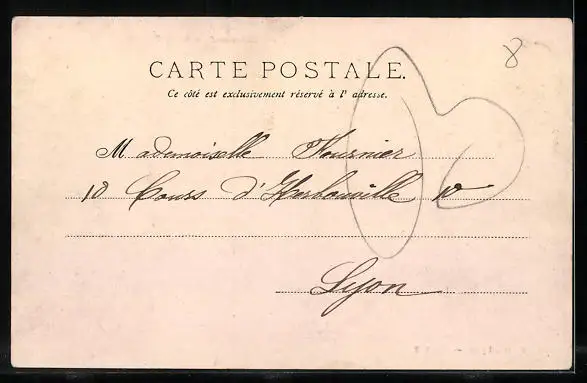 8
CARTE POSTALE.
Ce côté est exclusivement réservé à l' adresse.
Mademoiselle Fournier
10 Cours d'Herbouville 10
Lyon